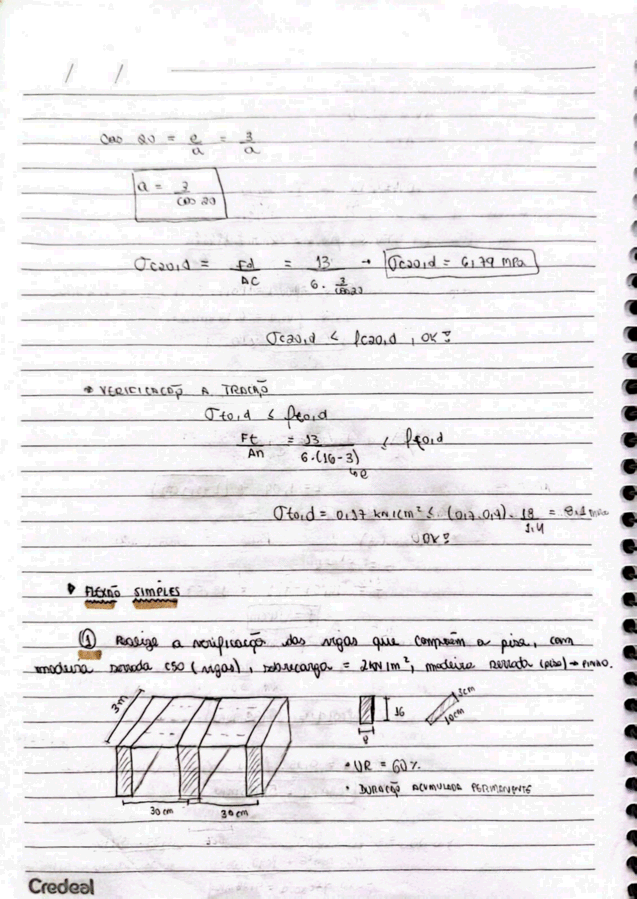 / /
cos 20 = e/a = 3/a
a = 3/cos 20
σc20,d = Fd/AC = 13/(6 · 3/cos 20) → σc20,d = 6,79 MPa
σc20,d ≤ fc20,d , OK!
* VERIFICAÇÃO A TRAÇÃO
σt0,d ≤ ft0,d
Ft/An = 13/(6·(16-3)) ≤ ft0,d
↳e
σt0,d = 0,17 kN/cm² ≤ (0,7·0,4) · 18/1,4 = MPa
OK!
FLEXÃO SIMPLES
① Realize a verificação das vigas que compõem a piso, com
madeira serrada C50 (vigas), sobrecarga = 2kN/m², madeira serrada (piso) → PINHO.
3m
16
8
3cm
10cm
30 cm 30 cm
• UR = 60%
• DURAÇÃO ACUMULADA PERMANENTE
Credeal